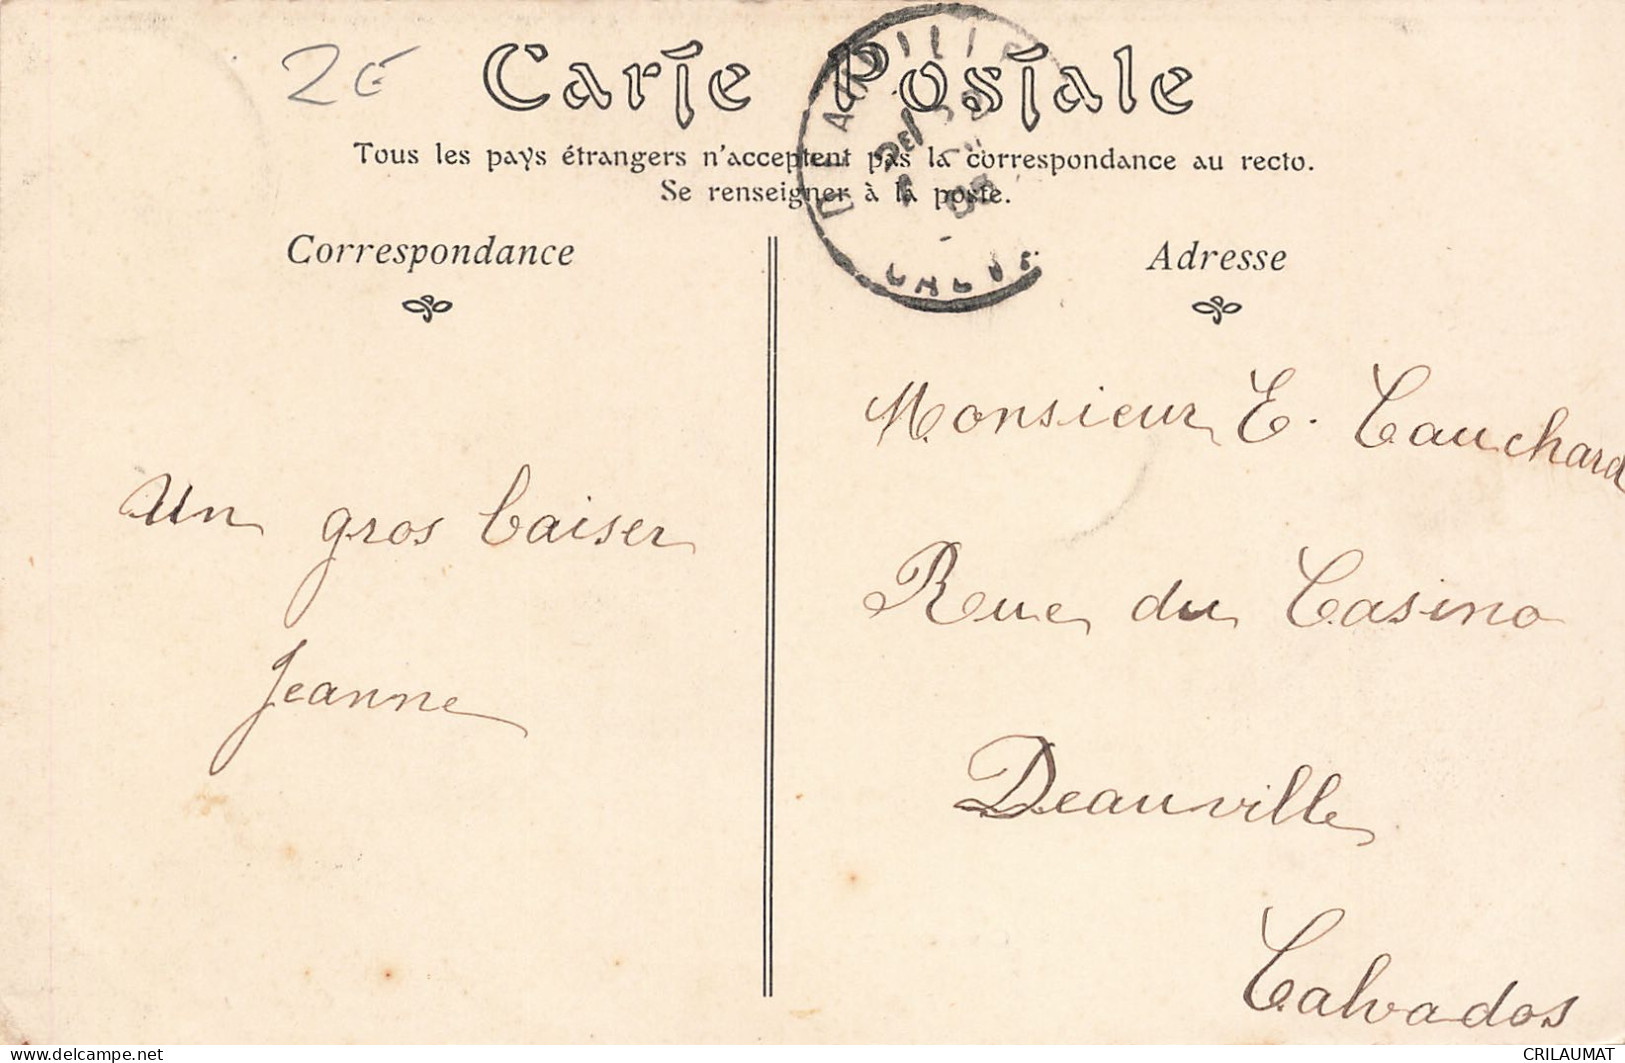 2€
Carte Postale
Tous les pays étrangers n'acceptent pas la correspondance au recto.
Se renseigner à la poste.
Correspondance
Adresse
Un gros baiser
Jeanne
Monsieur E. Cauchard
Rue du Casino
Deauville
Calvados
www.delcampe.net
CRILAUMAT